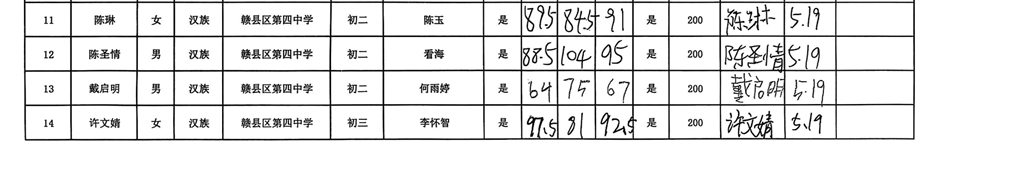 11 陈琳 女 汉族 赣县区第四中学 初二 陈玉 是 89.5 84.5 91 是 200 陈琳 5.19
12 陈圣情 男 汉族 赣县区第四中学 初二 看海 是 88.5 104 95 是 200 陈圣情 5.19
13 戴启明 男 汉族 赣县区第四中学 初二 何雨婷 是 64 75 67 是 200 戴启明 5.19
14 许文婧 女 汉族 赣县区第四中学 初三 李怀智 是 97.5 81 92.5 是 200 许文婧 5.19